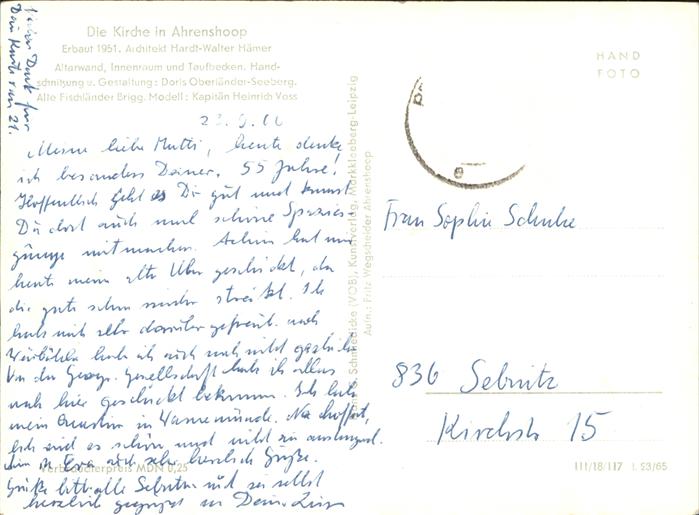 Vielen Dank für
Die Kirche in Ahrenshoop
Erbaut 1951. Architekt Hardt-Walter Hämer
Altarwand, Innenraum und Taufbecken. Hand-
schnitzung u. Gestaltung: Doris Oberländer-Seeberg.
Alte Fischländer Brigg. Modell: Kapitän Heinrich Voss
HAND
FOTO
Meine liebe Mutti, heute denke
ich besonders Deiner. 55 Jahre!
Hoffentlich geht es Dir gut und kannst
Du dort auch mal schöne Spazier-
gänge mitmachen. Achim hat mir
heute meine alte Uhr geschickt, da
die gute schon wieder streikt. Ich
hab mich sehr darüber gefreut. nach
hab ich auch noch nicht
Von der Geogr. Gesellschaft hab ich alles
nach hier geschickt bekommen. Ich hab
mein Quartier in Warnemünde. Na hoffentl.
wird es schön und nicht zu anstrengend.
Eva auch sehr herzlich Grüße.
Grüße bitte alle Sebnitzer und sei selbst
herzlich gegrüßt von Deiner
Verbraucherpreis MDN 0,25
Kunstverlag, Markkleeberg-Leipzig
Aufn.: Fritz Wegscheider Ahrenshoop
Frau Sophie Schulze
836 Sebnitz
Kirchstr 15
III/18/117 L 93/65